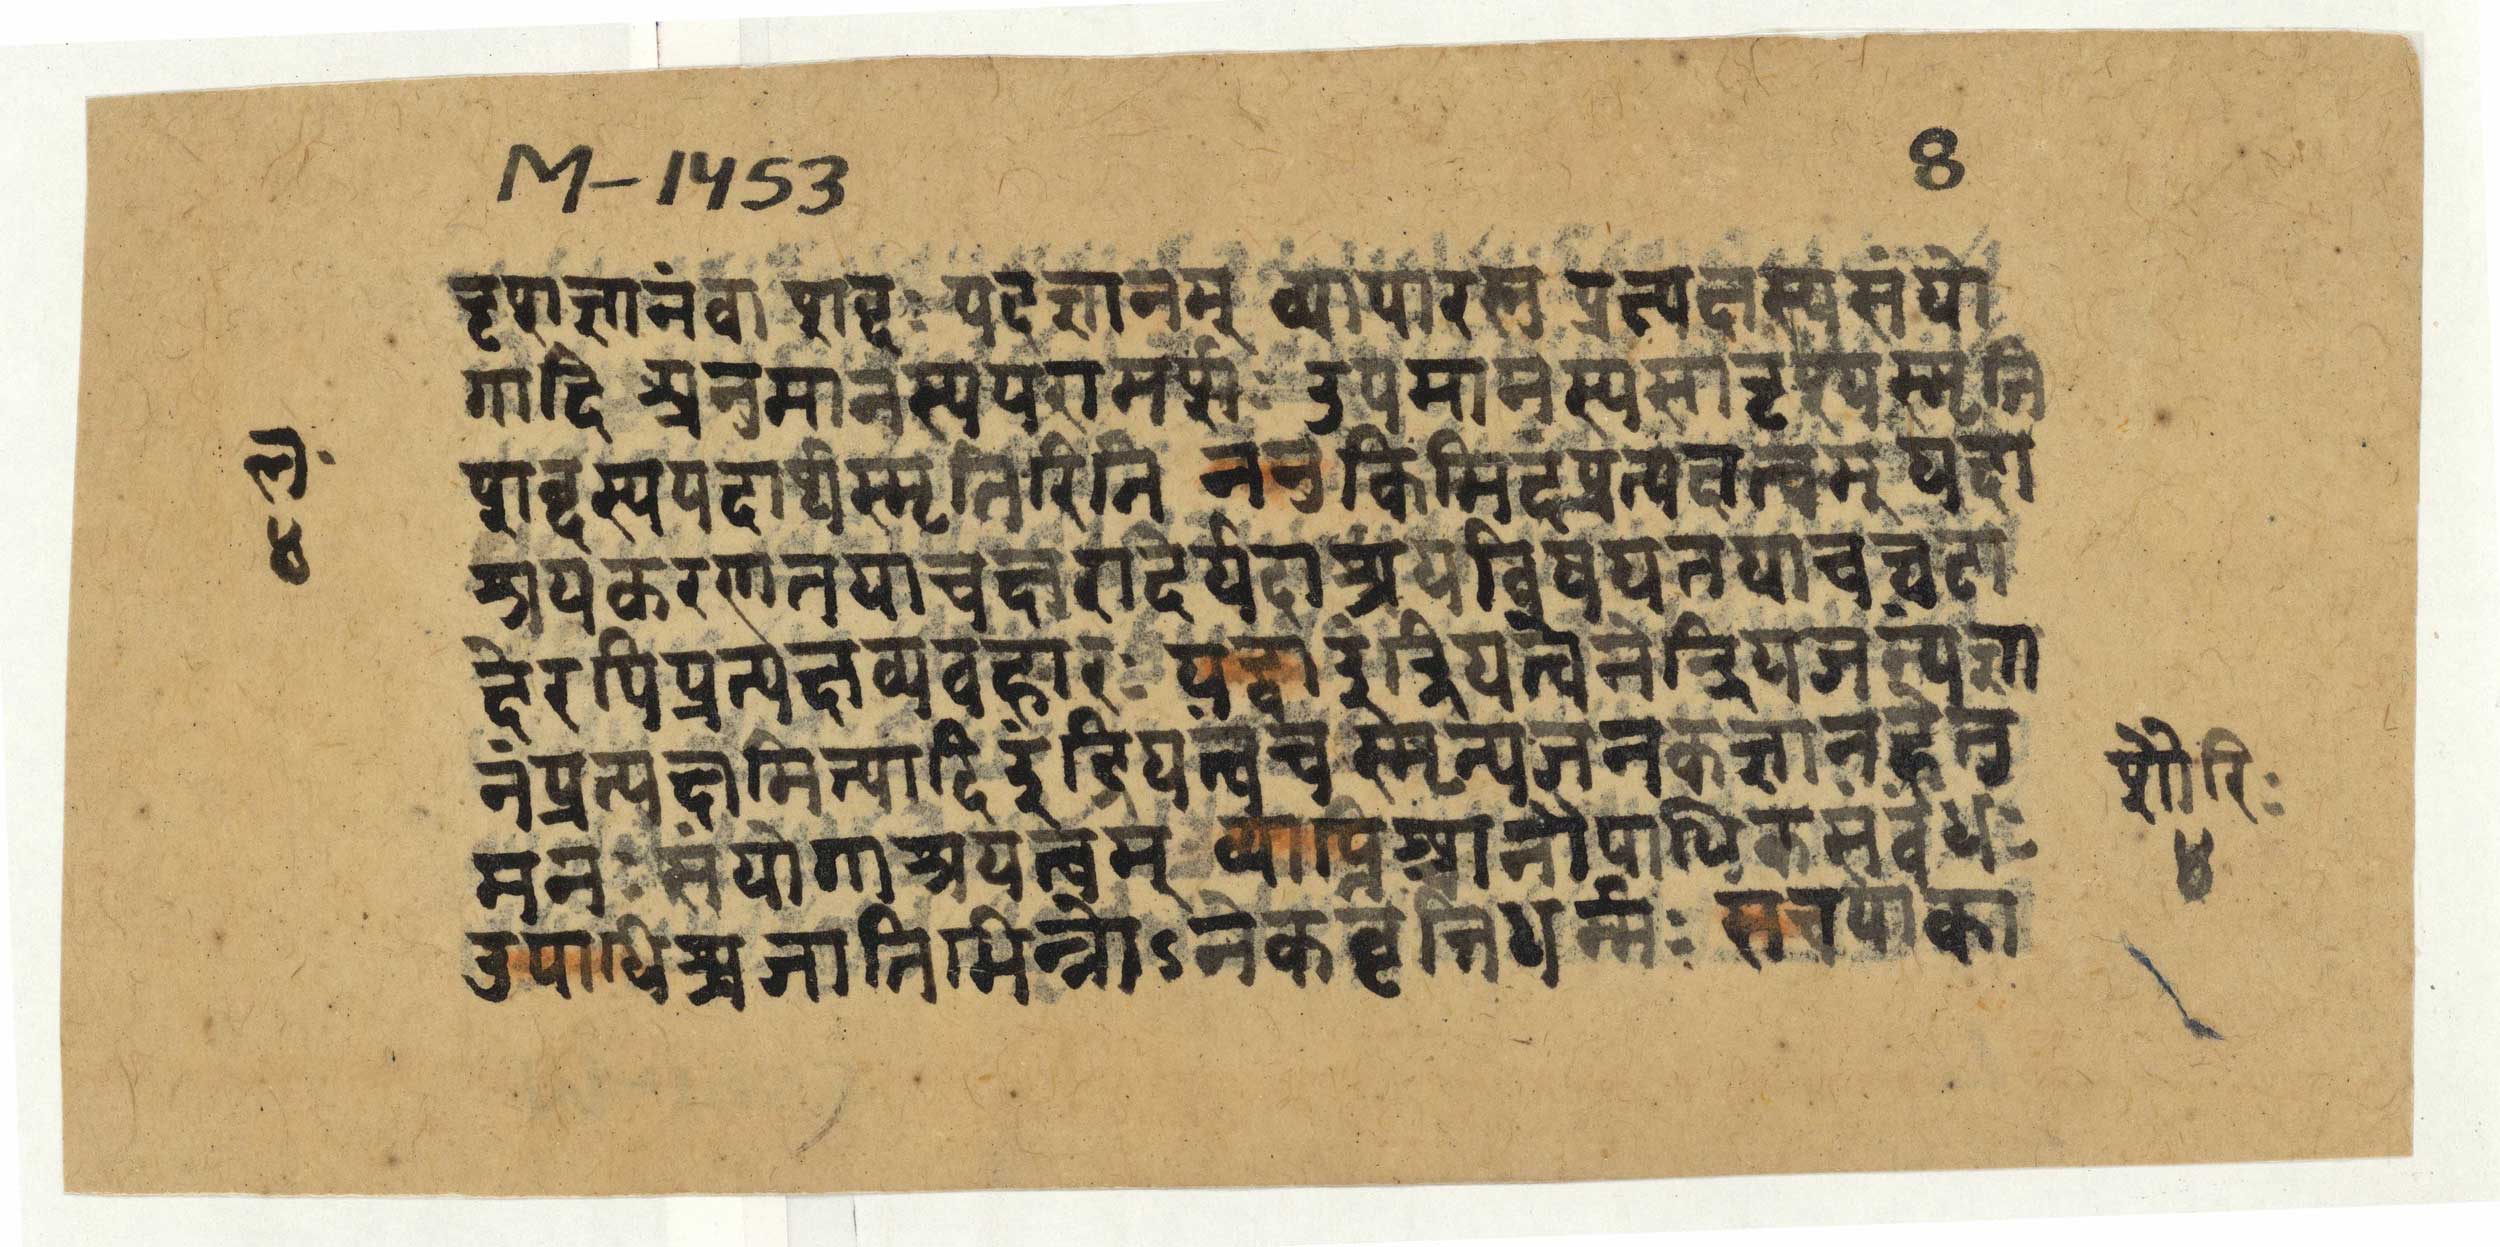 M-1453
8
दृशज्ञानंवा शब्दः पदज्ञानम् व्यापारस्तु प्रत्यक्षस्यसंयो
गादि अनुमानस्यपरामर्शः उपमानस्यसादृश्यस्मृति
शब्दस्यपदार्थस्मृतिरिति ननुकिमिदंप्रत्यक्षत्वम् यदा
श्रयकरणतयाचक्षुरादेर्यदाश्रयविषयतयाचघटा
देरपिप्रत्यक्षव्यवहारः यद्वा इंद्रियत्वेनेन्द्रियजन्यज्ञा
नंप्रत्यक्षमित्यादि इंद्रियत्वंच स्मृत्यजनकज्ञानहेतु
मनःसंयोगाश्रयत्वम् व्याप्तिश्चानौपाधिकसंबंधः
उपाधिश्चजातिभिन्नोऽनेकवृत्तिधर्म्मः सचपाका
ल॰
४
शौरिः
४